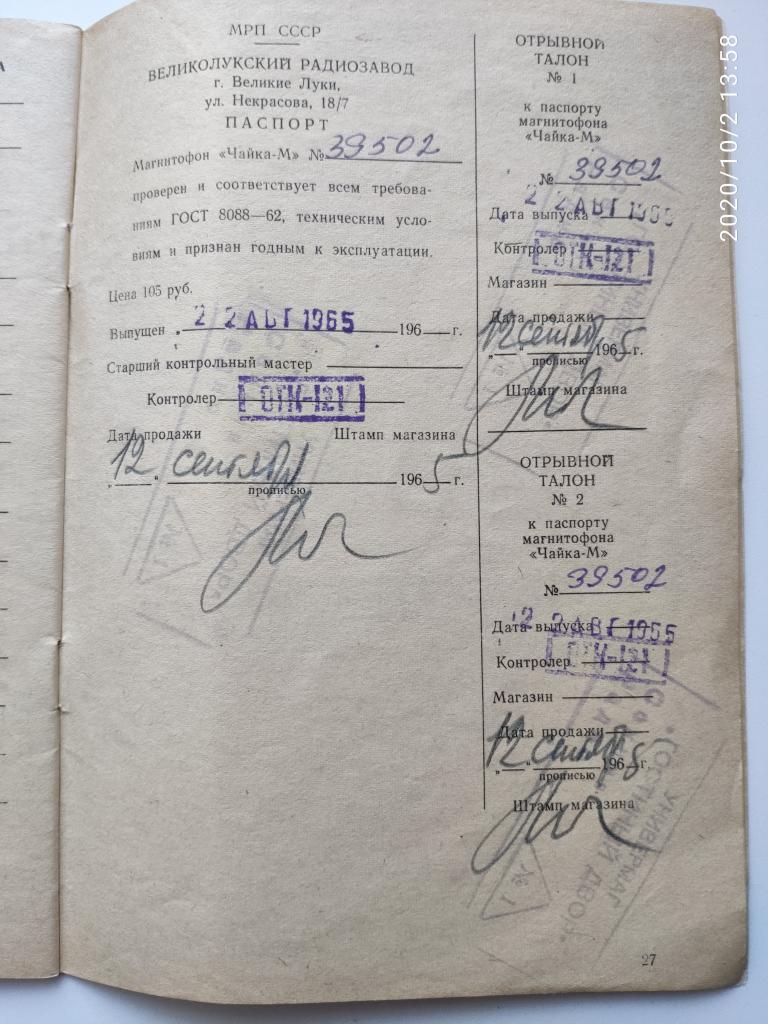 МРП СССР
ВЕЛИКОЛУКСКИЙ РАДИОЗАВОД
г. Великие Луки,
ул. Некрасова, 18/7
ПАСПОРТ
Магнитофон «Чайка-М» № 39502
проверен и соответствует всем требова-
ниям ГОСТ 8088—62, техническим усло-
виям и признан годным к эксплуатации.
Цена 105 руб.
Выпущен „ 2 2 АВГ 1965 196 г.
Старший контрольный мастер
Контролер ОТК-121
Дата продажи Штамп магазина
„12“ сентября 1965 г.
прописью
№ 1
ОТРЫВНОЙ
ТАЛОН
№ 1
к паспорту
магнитофона
«Чайка-М»
№ 39502
Дата выпуска 2 2 АВГ 1965
Контролер ОТК-121
Магазин
Дата продажи
„12“ сентября 1965 г.
прописью
Штамп магазина
ОТРЫВНОЙ
ТАЛОН
№ 2
к паспорту
магнитофона
«Чайка-М»
№ 39502
Дата выпуска 2 2 АВГ 1965
Контролер ОТК-121
Магазин
Дата продажи
„12“ сентября 1965 г.
прописью
Штамп магазина
УНИВЕРМАГ
ГОСТИНЫЙ ДВОР
№ 1
27
2020/10/2 13:58